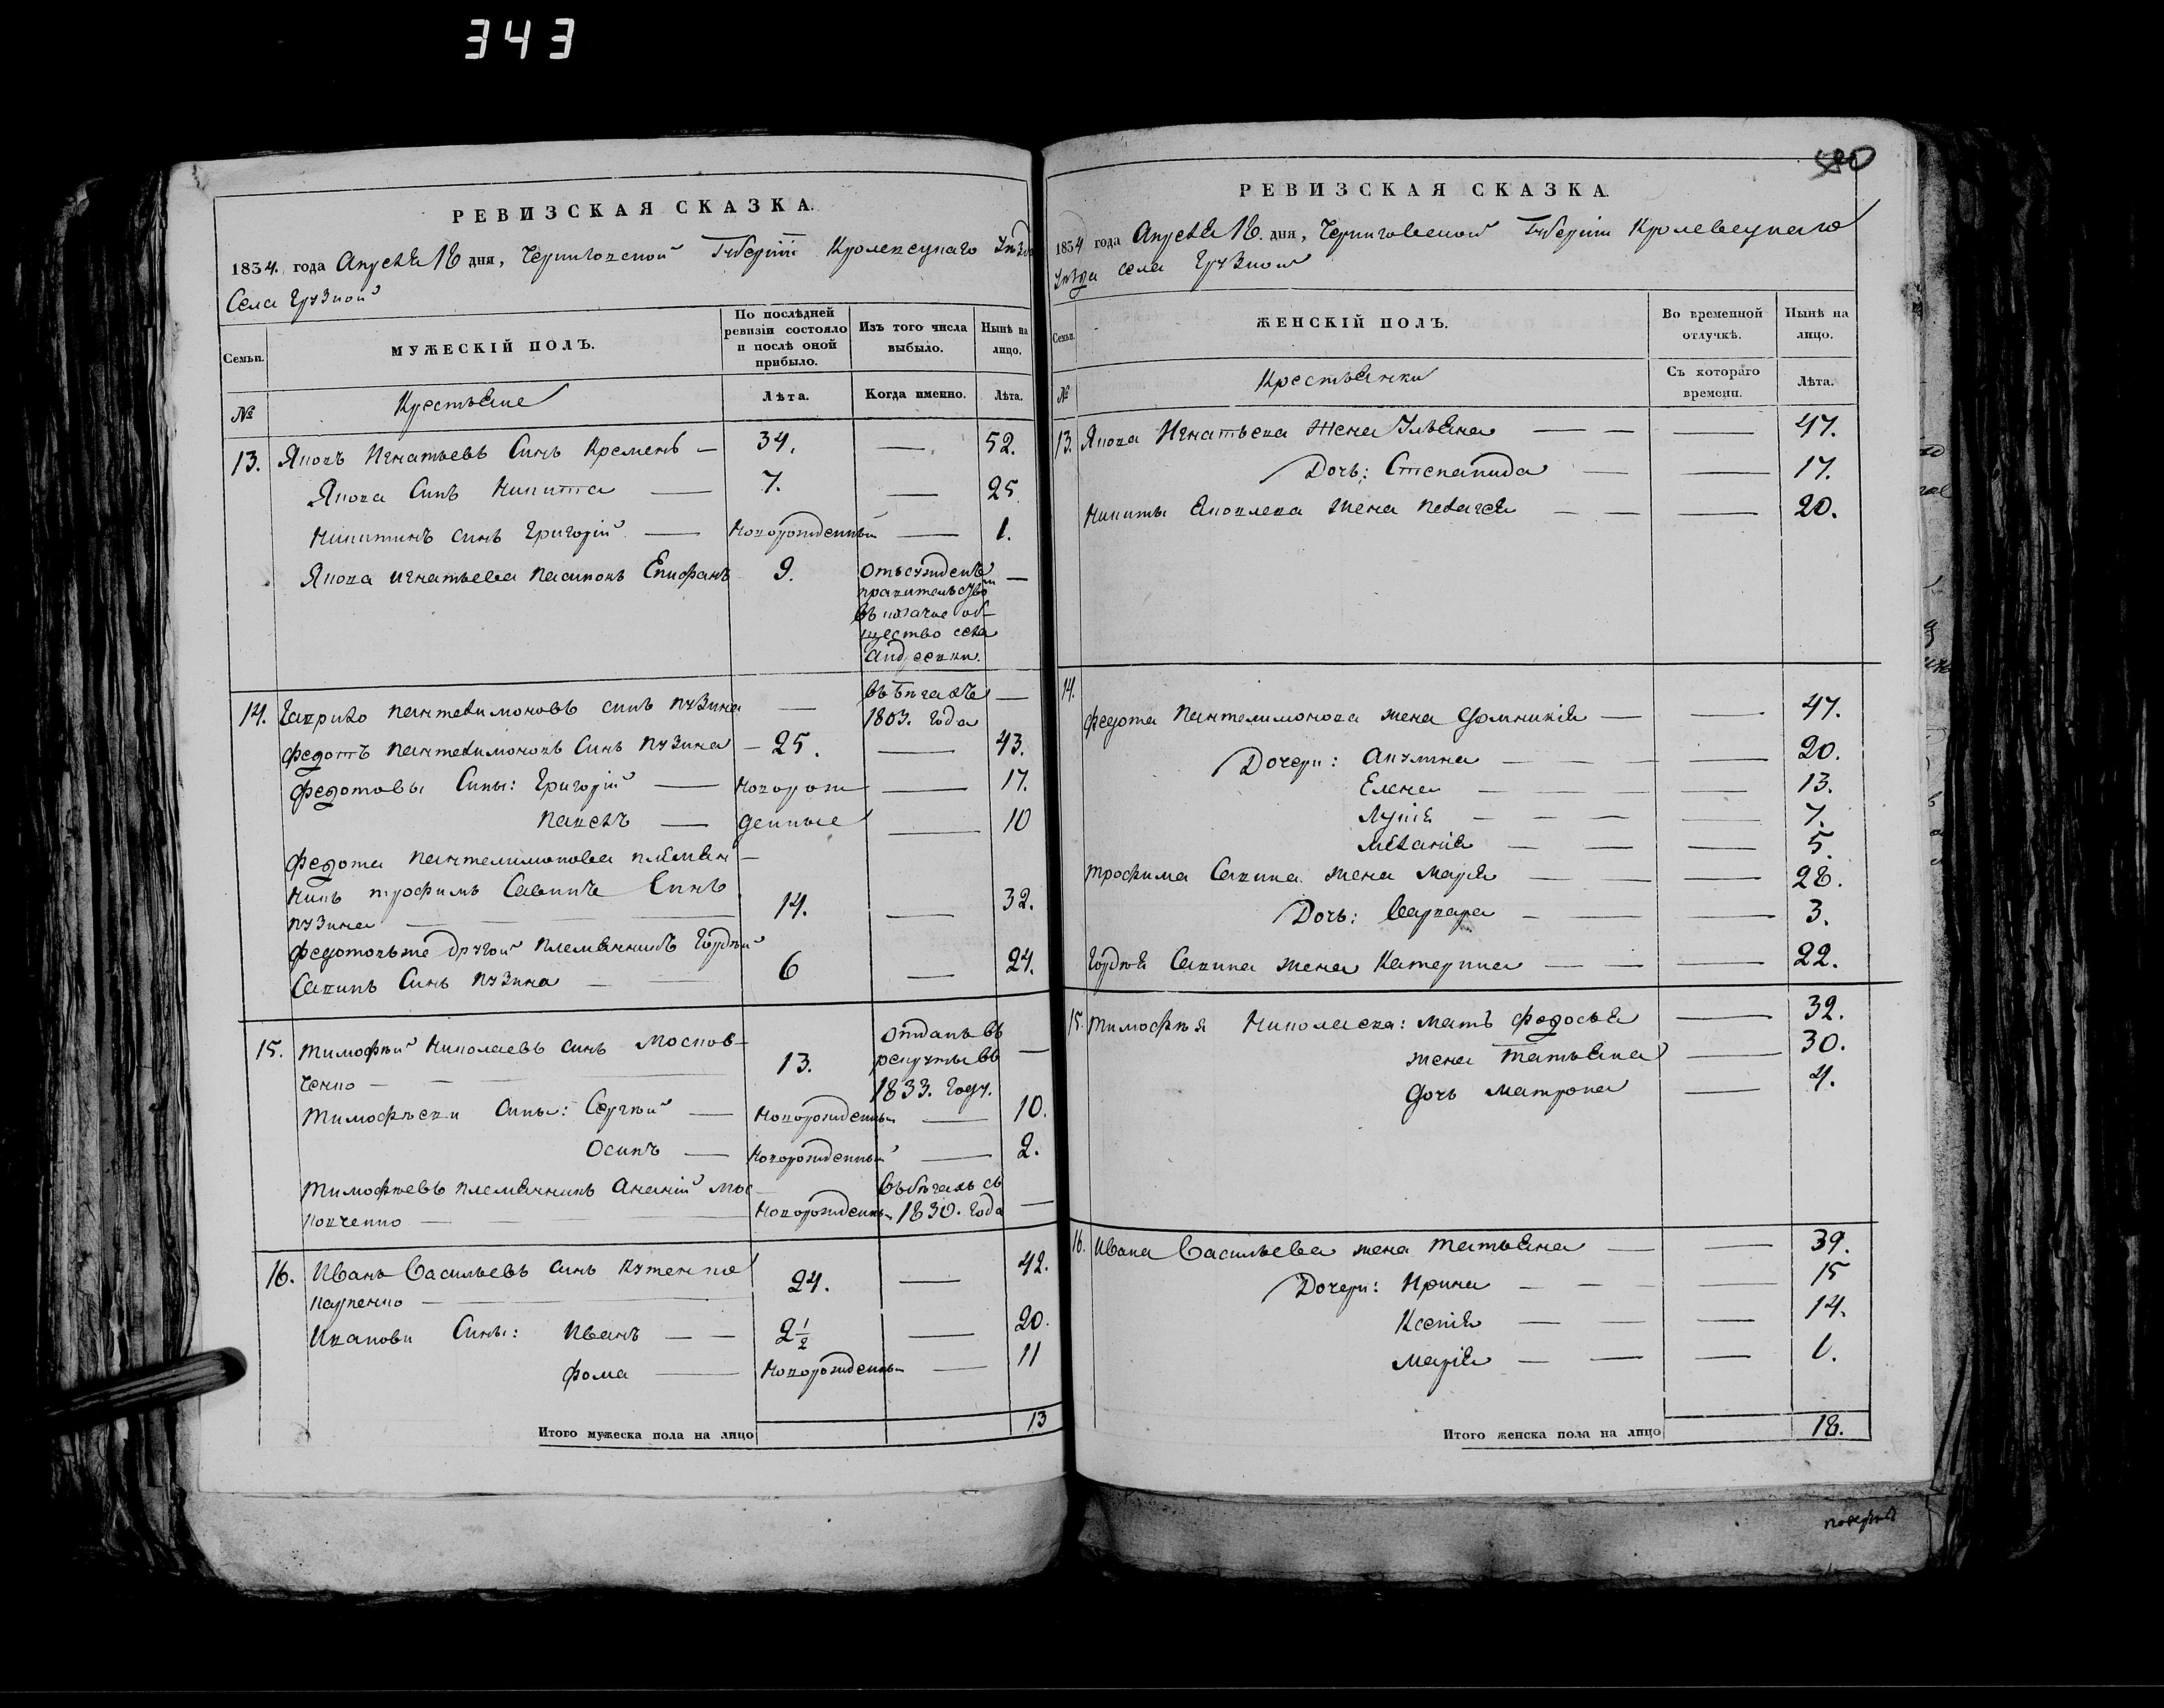 343
РЕВИЗСКАЯ СКАЗКА.
1834. года Апреля 18 дня, Черниговской Губернiи Кролевецкаго Уезда
Села Грузкой
Семьи.
МУЖЕСКІЙ ПОЛЪ.
По послѣдней ревизіи состояло и послѣ оной прибыло.
Изъ того числа выбыло.
Нынѣ на лицо.
№
Крестьяне
Лѣта.
Когда именно.
Лѣта.
13. Яковъ Игнатьевъ Синъ Кремень — 34. — 52.
Якова Синъ Никита — 7. — 25
Никитинъ синъ Григорій — Новорожденный — 1.
Якова Игнатьева пасинокъ Епифанъ 9. Отъсужденъ
правительством —
въ казачое об-
щество села
Андреевки.
14. Гаврило Пантелимоновъ синъ Пузина — въ бегахъ —
1803. года
Федотъ Пантелимоновъ Синъ Пузина — 25. — 43.
Федотовы Сины: Григорій — Новорож — 17.
Павелъ — денные — 10
Федота Пантелимонова племян-
никъ Трофимъ Савинъ Синъ
Пузина — 14. — 32.
Федотовъже другой племянникъ Гордѣй
Савинъ Синъ Пузина — 6 — 24.
15. Тимофѣй Николаевъ синъ Москов-
ченко — 13. отданъ въ
рекруты въ —
1833. году.
Тимофѣеви Сины: Сергѣй — Новорожденный — 10.
Осипъ — Новорожденный — 2.
Тимофѣевъ племянникъ Ананій Мос-
ковченко — Новорожденный въ бѣгахъ съ
1830. года —
16. Иванъ Васильевъ синъ Кутенко
Карпенко — 24. — 42.
Иванови Сины: Иванъ — — 2 1/2 — 20.
Фома — Новорожденный — 11
Итого мужеска пола на лицо 13
РЕВИЗСКАЯ СКАЗКА.
1834 года Апреля 18. дня, Черниговской Губерніи Кролевецкаго
Уезда села Грузкой
Семьи.
ЖЕНСКІЙ ПОЛЪ.
Во временной отлучкѣ.
Нынѣ на лицо.
№
Крестьянки
Съ котораго времени.
Лѣта.
13. Якова Игнатьева жена Ульяна — — — 47.
Дочь: Степанида — — 17.
Никиты Яковлева жена Пелагея — — — 20.
14.
Федота Пантелимонова жена Домникія — — 47.
Дочери: Акулина — — — 20.
Елена — — — 13.
Лукія — — — 7.
Меланія — — — 5.
Трофима Савина жена Марія — — 28.
Дочь: Варвара — — — 3.
Гордѣя Савина жена Катерина — — — 22.
15. Тимофѣя Николаева: мать Федосья — 32.
жена Татьяна — 30.
дочь Матрона — 4.
16. Ивана Васильева жена Татьяна — — 39.
Дочери: Ирина — — — 15
Ксенія — — — 14.
Марія — — — 1.
Итого женска пола на лицо 18.